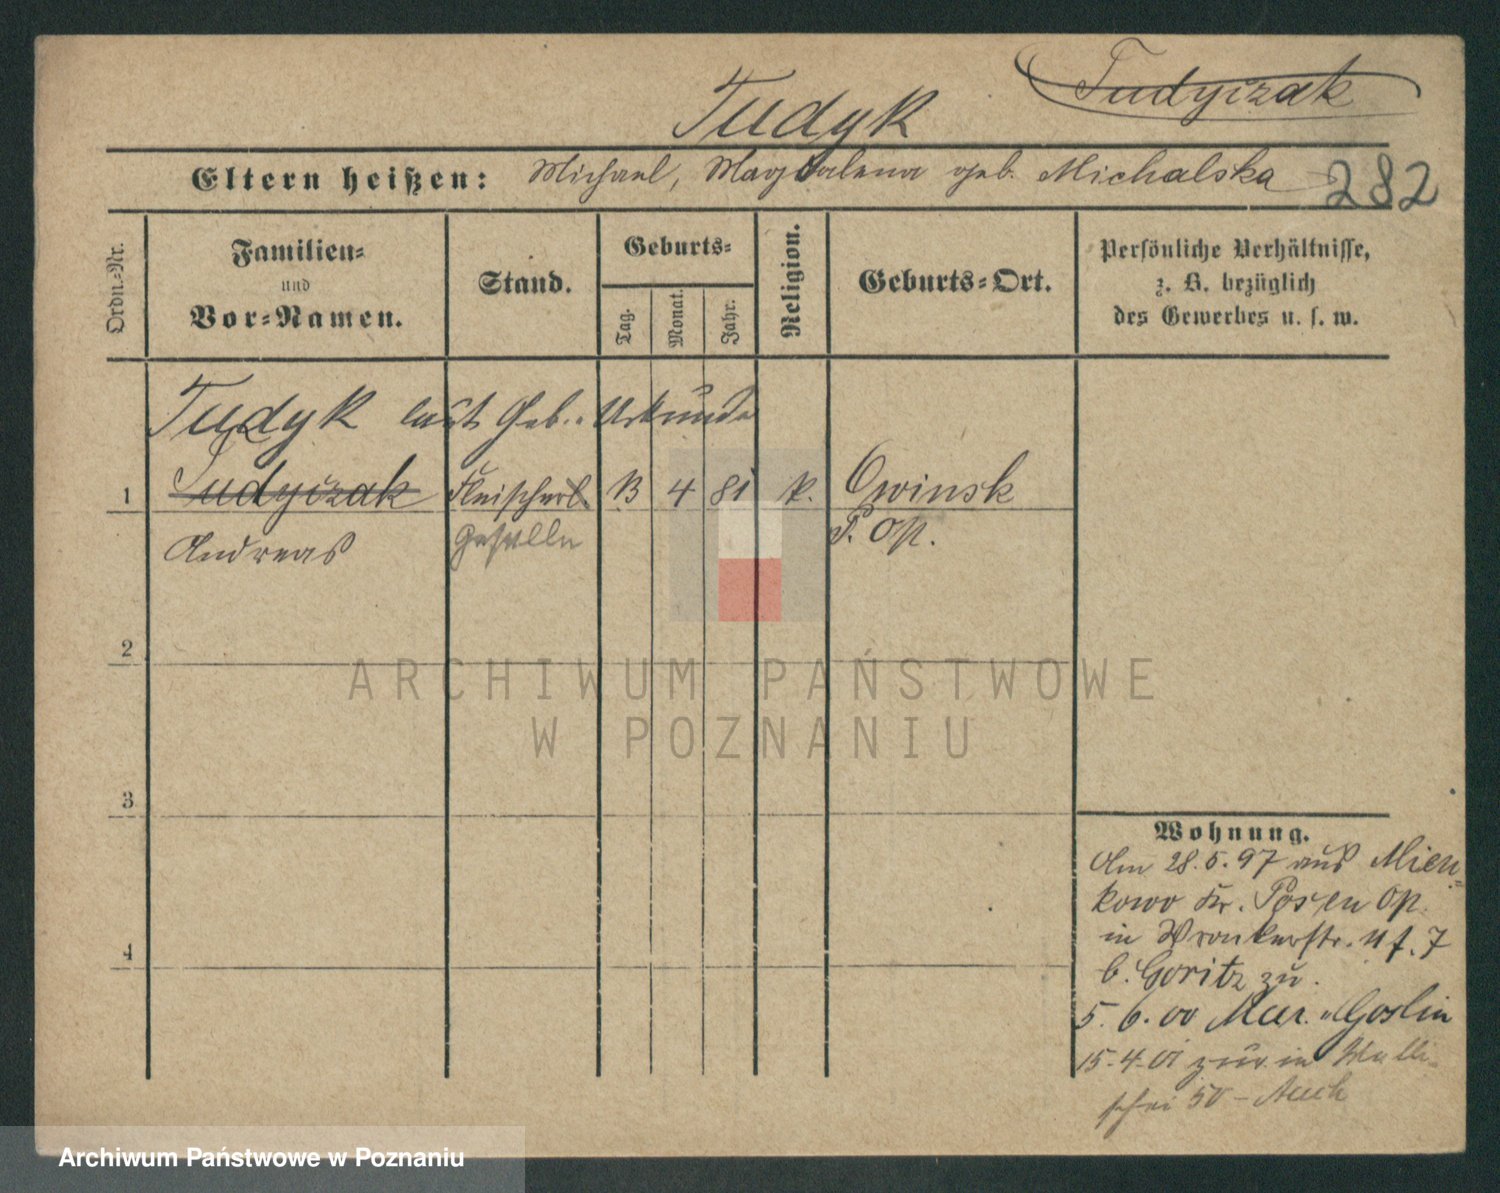 Tudyczak
Tudyk
Eltern heißen: Michael, Magdalena geb. Michalska
282
Ordn.-Nr.
Familien-
und
Vor-Namen.
Stand.
Geburts-
Tag.
Monat.
Jahr.
Religion.
Geburts-Ort.
Persönliche Verhältnisse,
z. B. bezüglich
des Gewerbes u. s. w.
Tudyk laut Geb. Urkunde
1 Tudyczak Fleischerl. 13 4 81 k. Owinsk
Andreas Geselle P. Op.
2
3
4
Wohnung.
Am 28.5.97 aus Mien-
kowo Kr. Posen Op.
in Wronkerstr. 11 f. 7
b. Goritz zu.
5.6.00 Mur. Goslin
15.4.01 zur. in Walli-
schei 50 -
ARCHIWUM PAŃSTWOWE
W POZNANIU
Archiwum Państwowe w Poznaniu